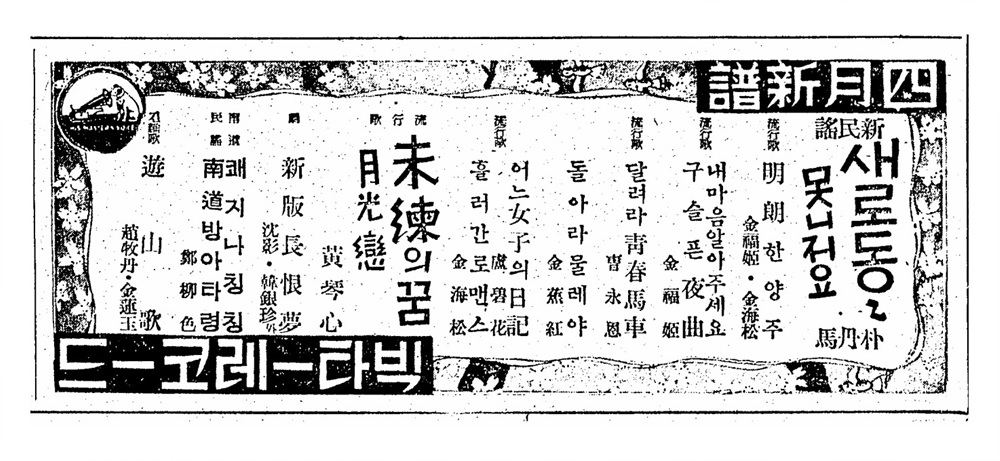 四月新譜
新民謠
새로동동
못니저요
朴丹馬
流行歌
明朗한양주
金福姬・金海松
流行歌
내마음알아주세요
구슬픈夜曲
金福姬
流行歌
달려라青春馬車
曺永恩
돌아라물레야
金蕉紅
流行歌
어느女子의日記
盧碧花
흘러간로맨스
金海松
流行歌
未練의꿈
月光戀
黃琴心
劇
新版長恨夢
沈影・韓銀珍外
南道民謠
쾌지나칭칭
南道방아타령
鄭柳色
遊山歌
趙牧丹・金蓮玉
빅타ー레코ー드